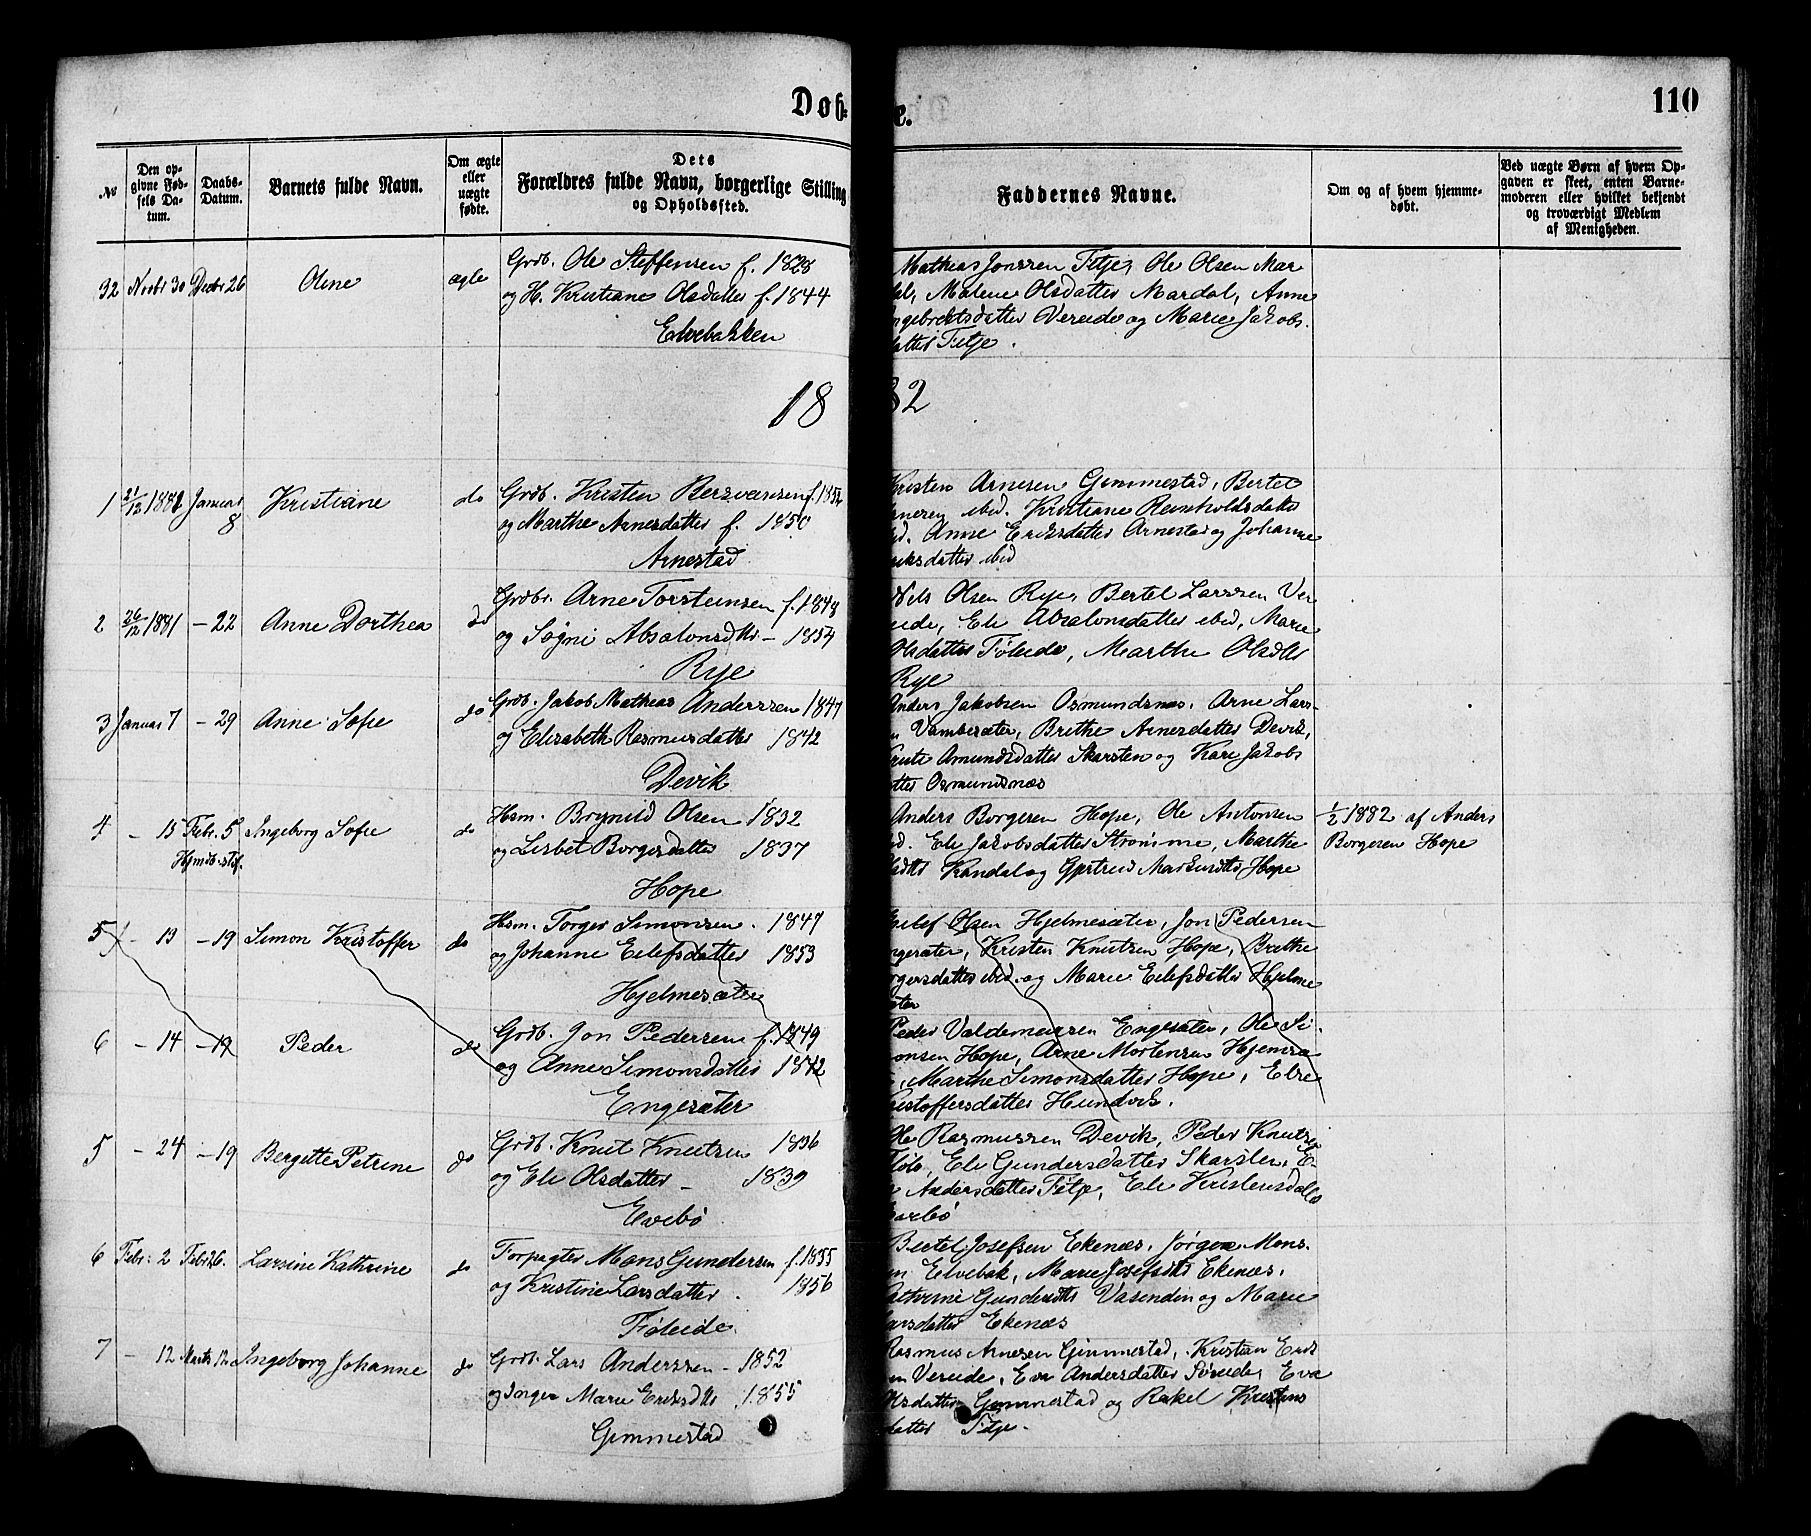 Døb-
e.
110
No
Den op-
givne Fød-
sels Da-
tum.
Daabs-
Datum.
Barnets fulde Navn.
Om ægte
eller
uægte
fødte.
Dets
Forældres fulde Navn, borgerlige Stilling
og Opholdssted.
Faddernes Navne.
Om og af hvem hjemme-
døbt.
Ved uægte Børn af hvem Op-
gaven er skeet, enten Barne-
moderen eller hvilket bekjendt
og troværdigt Medlem
af Menigheden.
32 Novbr 30 Decbr 26 Oline ægte Grdb. Ole Steffensen f. 1828
og H. Kristiane Olsdatter f. 1844
Elvebakken
Mathias Jonssen Fitje, Ole Olsen Mar
dal, Malene Olsdatter Mardal, Anne
ngebrektsdatter Vereide og Marie Jakobs.
datter Fitje.
18
82
1 21/12 1881 Januar 8 Kristiane do Grdb. Kristen Bersvansen f. 1852
og Marthe Arnesdatter f. 1850
Arnestad
Kristen Arnesen Gimmestad, Bertel
ibid. Kristiane Reinholdsdatter
ibid. Anne Eriksdatter Arnestad og Johanne
riksdatter ibid
2 26/12 1881 – 22 Anne Dorthea do Grdbr. Arne Torsteinsen f. 1848
og Søgni Absalonsdtt – 1854
Rye
Nels Olsen Rye, Bertel Larssen Ver
eide, Eli Absalonsdatter ibid, Marie
Olsdatter Føleide, Marthe Olsdtt
Rye
3 Januar 7 – 29 Anne Sofie do Grdb. Jakob Mathias Anderssen 1847
og Elisabeth Rasmusdatter 1842
Devik
Anders Jakobsen Osmundsnæs, Arne Lars-
n Vambesæter, Brithe Arnesdatter Devik,
Amundsdatter Skarsten og Kari Jakobs
datter Osmundsnæs
4 – 15 Febr. 5 Ingeborg Sofie do Hsm. Brynild Olsen 1832
Hjmdb. stf.
og Lisbet Borgersdatter 1837
Hope
Anders Borgersen Hope, Ole Antonsen
ibd. Eli Jakobsdatter Strømme, Marthe
sdtt Kandal og Gjertrud Markusdtt Hope
1/2 1882 af Anders
Borgersen Hope
5 – 13 – 19 Simon Kristoffer do Hsm. Torger Simonsen. 1847
og Johanne Eilefsdatter 1853
Hjelmesæter
Eilef Olsen Hjelmesæter, Jon Pedersen
Engesæter, Kristen Knutsen Hope, Brithe
orgersdatter ibid. og Marie Eilefsdatter Hjelme
sæter
6 – 14 – 19 Peder do Grdb. Jon Pederssen f. 1849
og Anne Simonsdatter 1842
Engesæter
Peder Valdemarssen Engesæter, Ole Si-
monsen Hope, Arne Mortensen Hjemsæ
, Marthe Simonsdatter Hope, Elise
ristoffersdatter Hundvik.
5 – 24 – 19 Bergitte Petrine do Grdb. Knut Knutsen 1836
og Eli Olsdatter – 1839
Evebø
Ole Rasmussen Devik, Peder Knutsen
Fløto, Eli Gundersdatter Skarsten, E-
Andersdatter Fitje, Eli Kristensdatter
6 Febr. 2 Febr 26. Larsine Kathrine do Forpagter Mons Gundersen f. 1835
og Kristine Larsdatter. 1856
Føleide.
Bertel Josefsen Ekenæs, Jørgen Mons.
sen Elvebak, Marie Josefsdtt Ekenæs.
Kathrine Gundersdtt Vasenden og Marie
Larsdatter Ekenæs
7 – 12 Marts 12 Ingeborg Johanne do Grdb. Lars Anderssen – 1852
og Inger Marie Eriksdtt 1855
Gimmestad
Rasmus Arnesen Gimmestad, Kristian Erik
sen Vereide, Eva Andersdatter Søreide, Eva
Olsdatter Gimmestad og Rakel Kristens
datter Fitje.